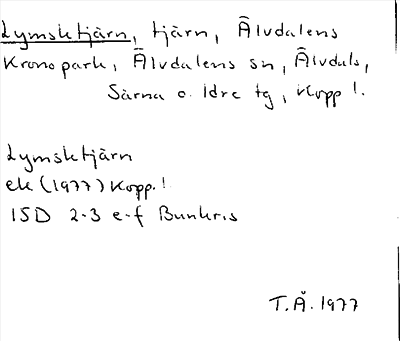 Lymsktjärn, tjärn, Älvdalens
Kronopark, Älvdalens sn, Älvdals,
Särna o. Idre tg, Kopp!.
Lymsktjärn
ek (1977) Kopp.!
15D 2-3 e-f Bunkris
T.Å. 1977